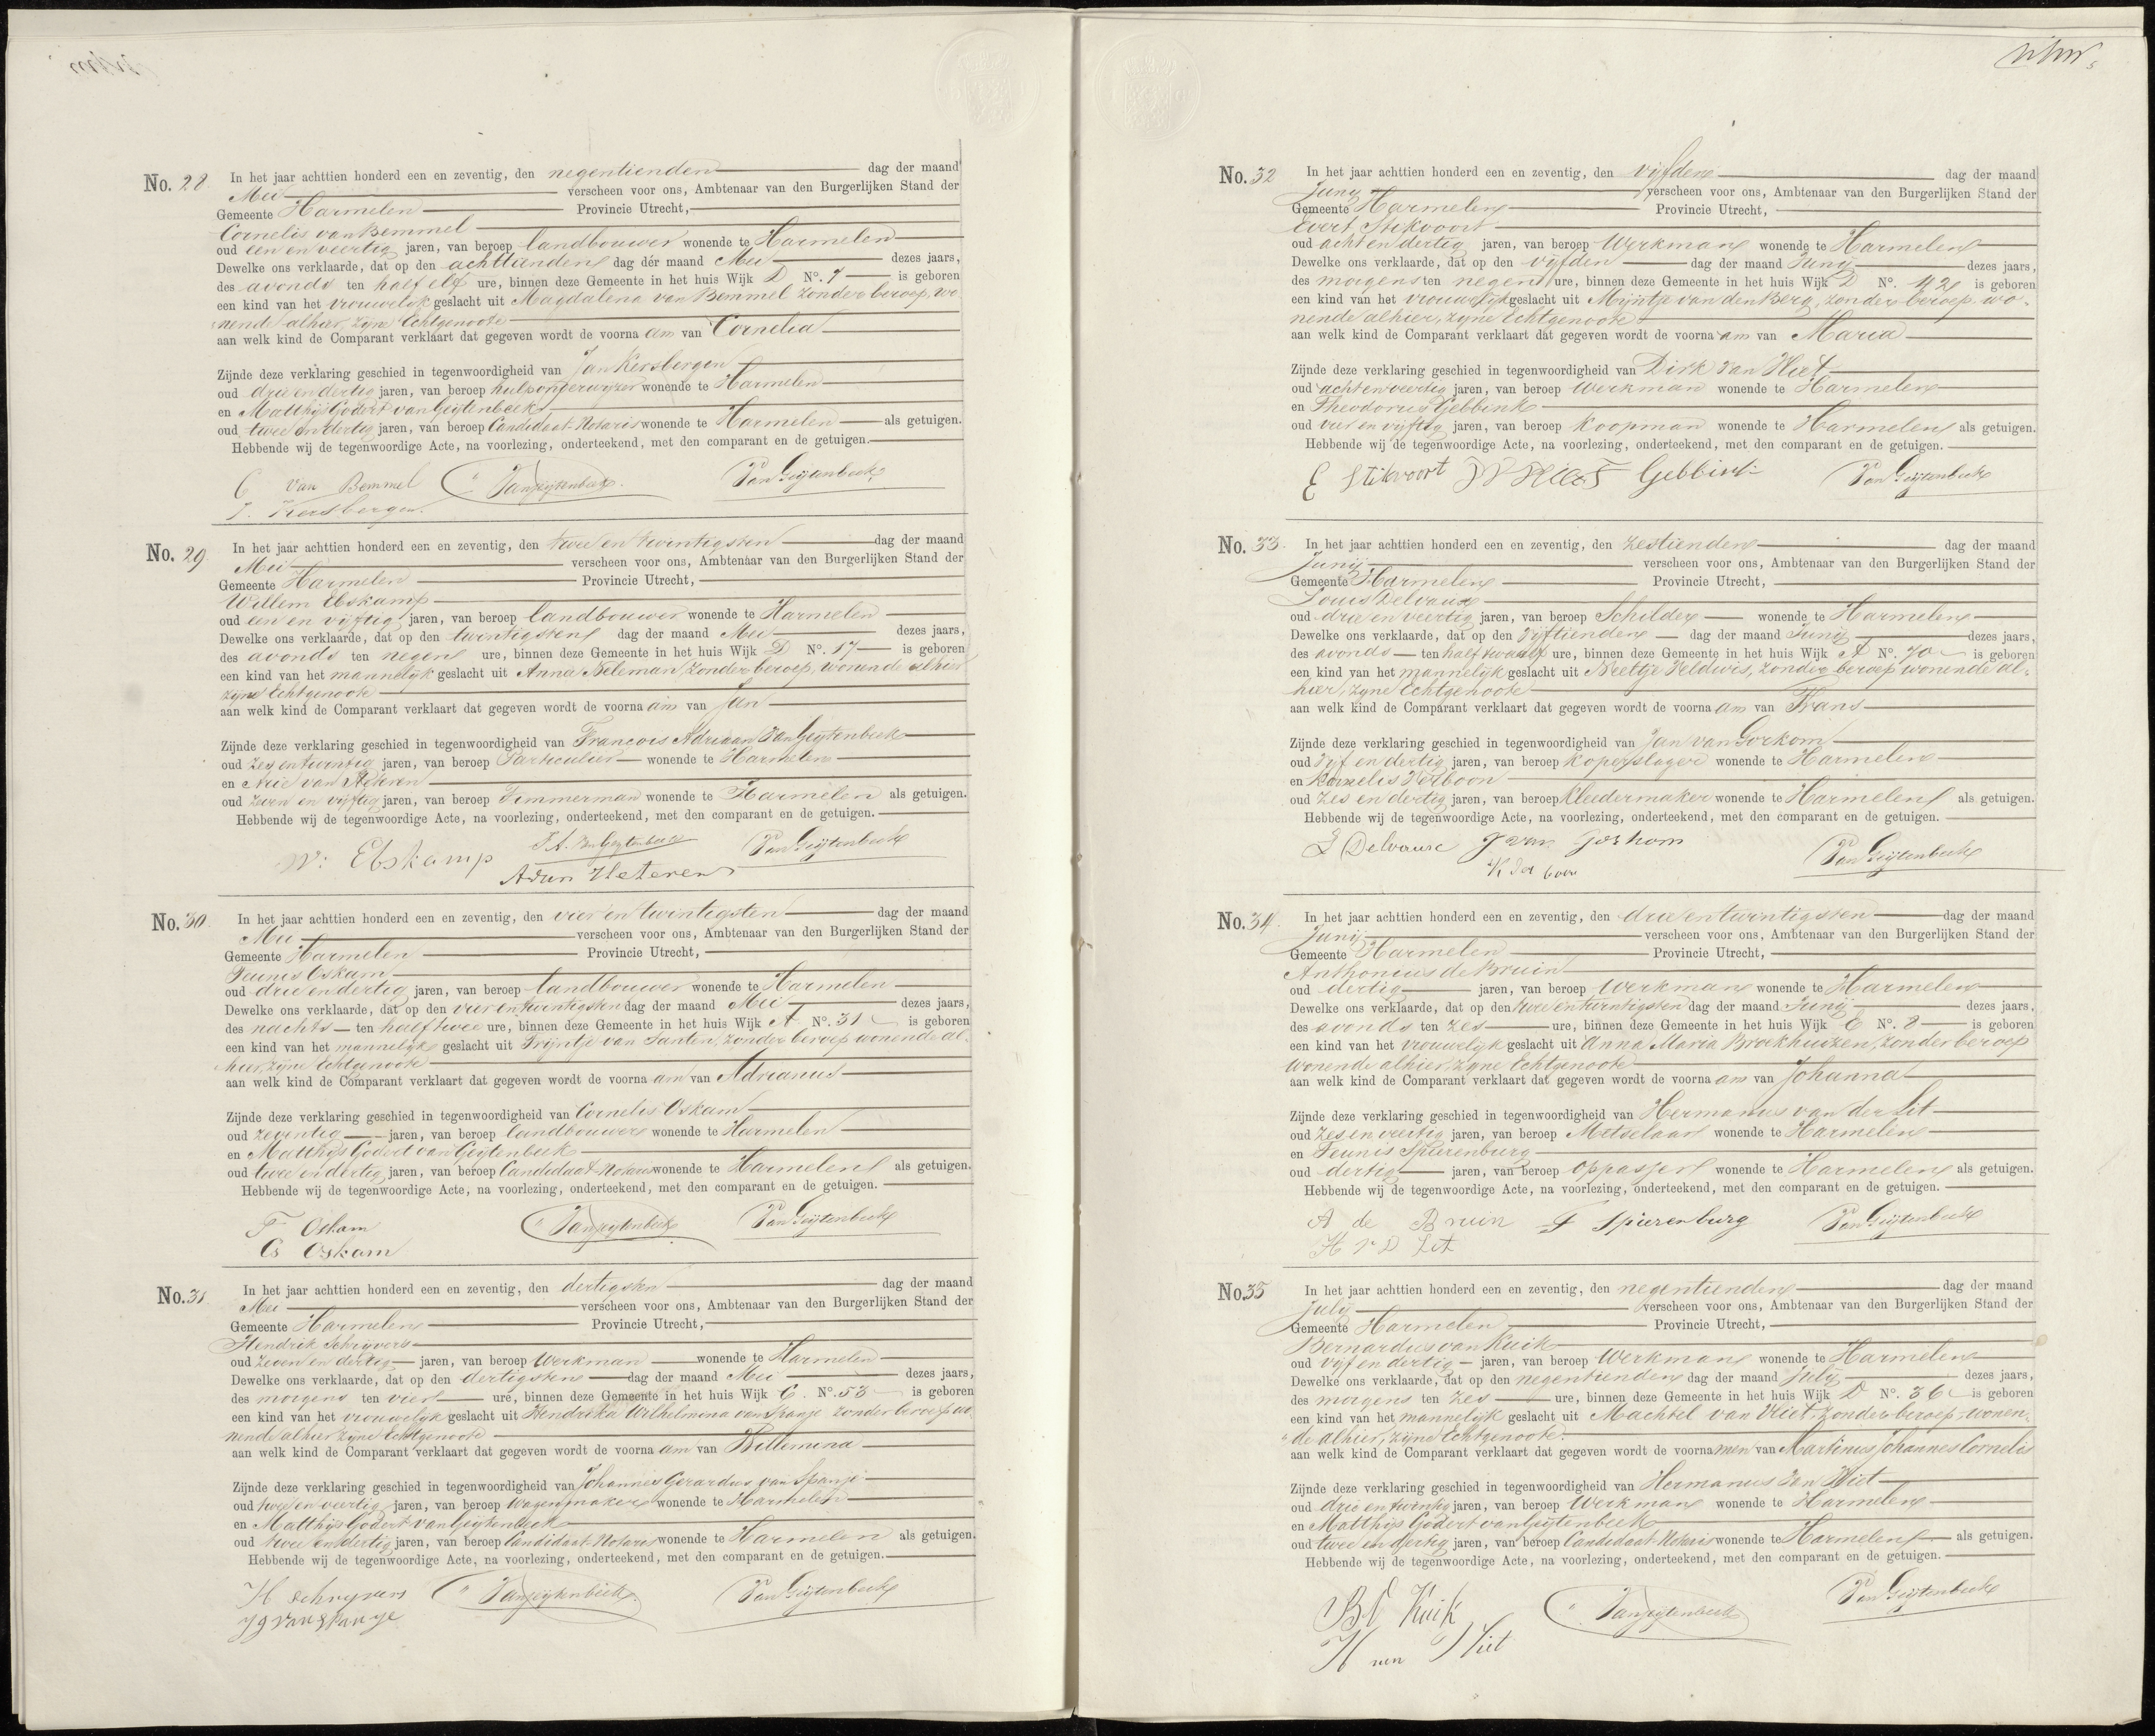 No. 28. In het jaar achttien honderd een en zeventig, den negentienden dag der maand
Mei verscheen voor ons, Ambtenaar van den Burgerlijken Stand der
Gemeente Harmelen Provincie Utrecht,
Cornelis van Bemmel
oud een en veertig jaren, van beroep landbouwer wonende te Harmelen
Dewelke ons verklaarde, dat op den achttanden dag der maand Mei dezes jaars,
des avonds ten half elf ure, binnen deze Gemeente in het huis Wijk D No. 7 is geboren
een kind van het vrouwelijk geslacht uit Magdalena van Bemmel zonder beroep, wo
nende alhier, zijne Echtgenoote
aan welk kind de Comparant verklaart dat gegeven wordt de voornaam van Cornelia
Zijnde deze verklaring geschied in tegenwoordigheid van Jan Kersbergen
oud drie en dertig jaren, van beroep hulponderwijzer wonende te Harmelen
en Matthijs Godert van Geijtenbeek
oud twee en dertig jaren, van beroep Candidaat-Notaris wonende te Harmelen als getuigen.
Hebbende wij de tegenwoordige Acte, na voorlezing, onderteekend, met den comparant en de getuigen.
C van Bemmel VanGeijtenbeek. Van Geijtenbeek
J. Kersbergen.
No. 29 In het jaar achttien honderd een en zeventig, den twee en twintigsten dag der maand
Mei verscheen voor ons, Ambtenaar van den Burgerlijken Stand der
Gemeente Harmelen Provincie Utrecht,
Willem Ebskamp
oud een en vijftig jaren, van beroep landbouwer wonende te Harmelen
Dewelke ons verklaarde, dat op den twintigsten dag der maand Mei dezes jaars,
des avonds ten negen ure, binnen deze Gemeente in het huis Wijk D No. 17 is geboren
een kind van het mannelijk geslacht uit Anna Neleman, zonder beroep, wonende alhier
zijne Echtgenoote
aan welk kind de Comparant verklaart dat gegeven wordt de voornaam van Jan
Zijnde deze verklaring geschied in tegenwoordigheid van Francois Adriaan Van Geijtenbeek
oud zes en twintig jaren, van beroep Particulier wonende te Harmelen
en Arie van Heteren
oud zeven en vijftig jaren, van beroep Timmerman wonende te Harmelen als getuigen.
Hebbende wij de tegenwoordige Acte, na voorlezing, onderteekend, met den comparant en de getuigen.
W: Ebskamp F.A. VanGeijtenbeek Van Geijtenbeek
A van Heteren
No. 30 In het jaar achttien honderd een en zeventig, den vier en twintigsten dag der maand
Mei verscheen voor ons, Ambtenaar van den Burgerlijken Stand der
Gemeente Harmelen Provincie Utrecht,
Teunis Oskam
oud drie en dertig jaren, van beroep landbouwer wonende te Harmelen
Dewelke ons verklaarde, dat op den vier en twintigsten dag der maand Mei dezes jaars,
des nachts ten half twee ure, binnen deze Gemeente in het huis Wijk A No. 31 is geboren
een kind van het mannelijk geslacht uit Trijntje van Santen, zonder beroep wonende al-
hier, zijne Echtgenoote
aan welk kind de Comparant verklaart dat gegeven wordt de voornaam van Adrianus
Zijnde deze verklaring geschied in tegenwoordigheid van Cornelis Oskam
oud zeventig jaren, van beroep landbouwer wonende te Harmelen
en Matthijs Godert van Geijtenbeek
oud twee en dertig jaren, van beroep Candidaat-Notaris wonende te Harmelen als getuigen.
Hebbende wij de tegenwoordige Acte, na voorlezing, onderteekend, met den comparant en de getuigen.
T Oskam VanGeijtenbeek Van Geijtenbeek
Cs Oskam
No. 31 In het jaar achttien honderd een en zeventig, den dertigsten dag der maand
Mei verscheen voor ons, Ambtenaar van den Burgerlijken Stand der
Gemeente Harmelen Provincie Utrecht,
Hendrik Schrijvers
oud zeven en dertig jaren, van beroep Werkman wonende te Harmelen
Dewelke ons verklaarde, dat op den dertigsten dag der maand Mei dezes jaars,
des morgens ten vier ure, binnen deze Gemeente in het huis Wijk C. No. 53 is geboren
een kind van het vrouwelijk geslacht uit Hendrika Wilhelmina van Spanje zonder beroep wo
nende alhier zijne Echtgenoote
aan welk kind de Comparant verklaart dat gegeven wordt de voornaam van Willemina
Zijnde deze verklaring geschied in tegenwoordigheid van Johannes Gerardus van Spanje
oud twee en veertig jaren, van beroep Wagenmaker wonende te Harmelen
en Matthijs Godert van Geijtenbeek
oud twee en dertig jaren, van beroep Candidaat Notaris wonende te Harmelen als getuigen.
Hebbende wij de tegenwoordige Acte, na voorlezing, onderteekend, met den comparant en de getuigen.
H schryvers VanGeijtenbeek. Van Geijtenbeek
J G van Spanje
No. 32 In het jaar achttien honderd een en zeventig, den vijfden dag der maand
Junij verscheen voor ons, Ambtenaar van den Burgerlijken Stand der
Gemeente Harmelen Provincie Utrecht,
Evert Stikvoort
oud acht en dertig jaren, van beroep Werkman wonende te Harmelen
Dewelke ons verklaarde, dat op den vijfden dag der maand Junij dezes jaars,
des morgens ten negen ure, binnen deze Gemeente in het huis Wijk D No. 42 is geboren
een kind van het vrouwelijk geslacht uit Mijntje van den Berg, zonder beroep wo-
nende alhier, zijne Echtgenoote
aan welk kind de Comparant verklaart dat gegeven wordt de voornaam van Maria
Zijnde deze verklaring geschied in tegenwoordigheid van Dirk van Vliet
oud acht en veertig jaren, van beroep Werkman wonende te Harmelen
en Theodorus Gebbink
oud vier en vijftig jaren, van beroep Koopman wonende te Harmelen als getuigen.
Hebbende wij de tegenwoordige Acte, na voorlezing, onderteekend, met den comparant en de getuigen.
E Stikvoort Gebbink Van Geijtenbeek
No. 33. In het jaar achttien honderd een en zeventig, den zestienden dag der maand
Junij verscheen voor ons, Ambtenaar van den Burgerlijken Stand der
Gemeente Harmelen Provincie Utrecht,
Louis Delvaux
oud drie en veertig jaren, van beroep Schilder wonende te Harmelen
Dewelke ons verklaarde, dat op den Vijftienden dag der maand Junij dezes jaars,
des avonds ten half twaalf ure, binnen deze Gemeente in het huis Wijk A No. 70 is geboren
een kind van het mannelijk geslacht uit Neeltje Veldwis, zonder beroep wonende al-
hier, zijne Echtgenoote
aan welk kind de Comparant verklaart dat gegeven wordt de voornaam van Frans
Zijnde deze verklaring geschied in tegenwoordigheid van Jan van Gorkom
oud Vijf en dertig jaren, van beroep Koperslager wonende te Harmelen
en Kornelis Verboon
oud Zes en dertig jaren, van beroep Kleedermaker wonende te Harmelen als getuigen.
Hebbende wij de tegenwoordige Acte, na voorlezing, onderteekend, met den comparant en de getuigen.
L Delvaux J van Gorkom Van Geijtenbeek
K Ver boon
No. 34. In het jaar achttien honderd een en zeventig, den drie en twintigsten dag der maand
Junij verscheen voor ons, Ambtenaar van den Burgerlijken Stand der
Gemeente Harmelen Provincie Utrecht,
Anthonius de Bruin
oud dertig jaren, van beroep Werkman wonende te Harmelen
Dewelke ons verklaarde, dat op den twee en twintigsten dag der maand Junij dezes jaars,
des avonds ten zes ure, binnen deze Gemeente in het huis Wijk C No. 8 is geboren
een kind van het vrouwelijk geslacht uit Anna Maria Broekhuizen, zonder beroep
wonende alhier, zijne Echtgenoote
aan welk kind de Comparant verklaart dat gegeven wordt de voornaam van Johanna
Zijnde deze verklaring geschied in tegenwoordigheid van Hermanus van der Lit
oud zes en veertig jaren, van beroep Metselaar wonende te Harmelen
en Teunis Spierenburg
oud dertig jaren, van beroep Oppasser wonende te Harmelen als getuigen.
Hebbende wij de tegenwoordige Acte, na voorlezing, onderteekend, met den comparant en de getuigen.
A de Bruin T Spierenburg Van Geijtenbeek
H v D Lit
No. 35 In het jaar achttien honderd een en zeventig, den negentienden dag der maand
Julij verscheen voor ons, Ambtenaar van den Burgerlijken Stand der
Gemeente Harmelen Provincie Utrecht,
Bernardus van Kuik
oud vijf en dertig jaren, van beroep Werkman wonende te Harmelen
Dewelke ons verklaarde, dat op den negentienden dag der maand Julij dezes jaars,
des morgens ten zes ure, binnen deze Gemeente in het huis Wijk D No. 36 is geboren
een kind van het mannelijk geslacht uit Machtel van Vliet, zonder beroep, wonen-
de alhier, zijne Echtgenoote.
aan welk kind de Comparant verklaart dat gegeven wordt de voornamen van Martinus Johannes Cornelis
Zijnde deze verklaring geschied in tegenwoordigheid van Hermanus van Vliet
oud drie en twintig jaren, van beroep Werkman wonende te Harmelen
en Matthijs Godert van Geijtenbeek
oud twee en dertig jaren, van beroep Candidaat Notaris wonende te Harmelen als getuigen.
Hebbende wij de tegenwoordige Acte, na voorlezing, onderteekend, met den comparant en de getuigen.
B V Kuik VanGeijtenbeek Van Geijtenbeek
H van Vliet